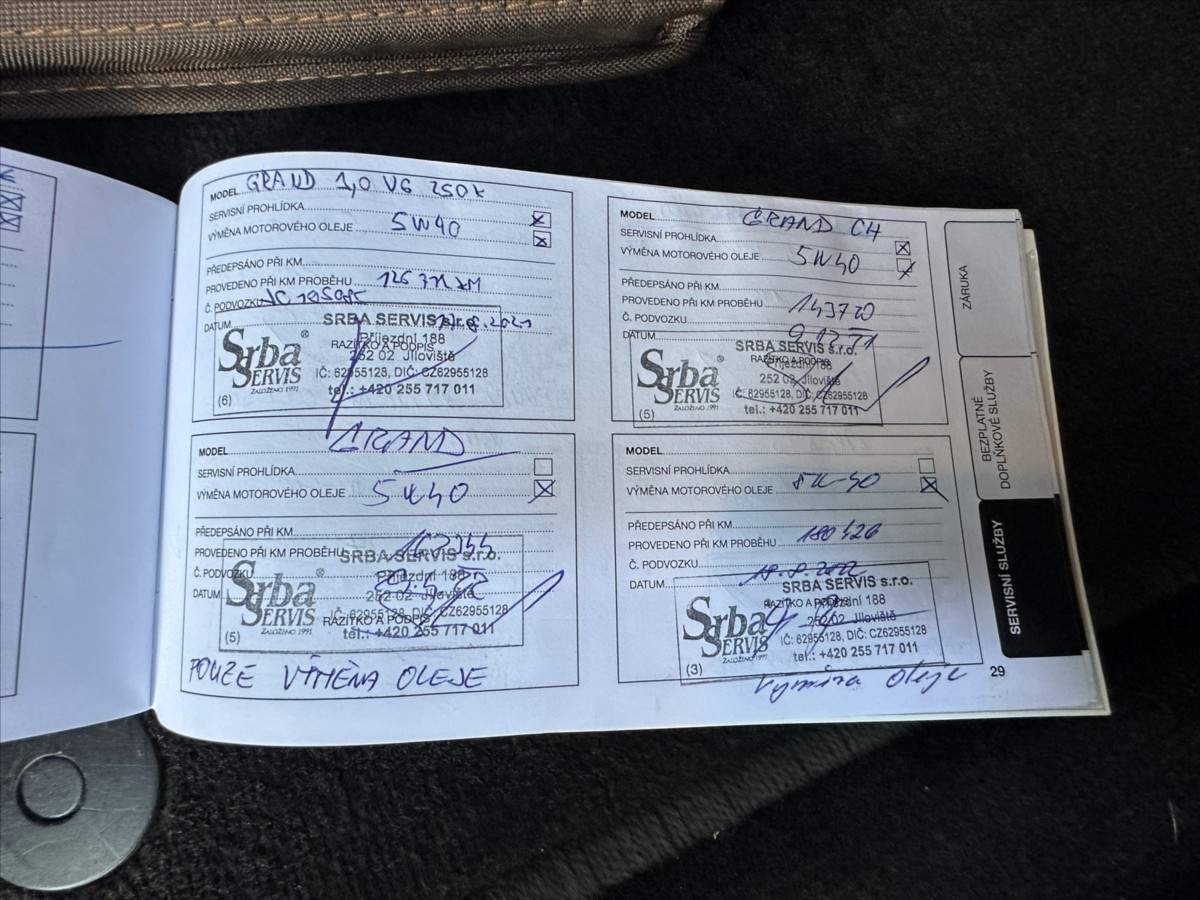 MODEL GRAND
SERVISNÍ PROHLÍDKA
VÝMĚNA MOTOROVÉHO OLEJE 5W40
PŘEDEPSÁNO PŘI KM
PROVEDENO PŘI KM PROBĚHU
Č. PODVOZKU
DATUM
SRBA SERVIS s.r.o.
Příjezdní 188
RAZÍTKO A PODPIS
252 02 Jíloviště
IČ: 62955128, DIČ: CZ62955128
tel.: +420 255 717 011
Srba SERVIS
ZALOŽENO 1991
(6)
MODEL GRAND CH
SERVISNÍ PROHLÍDKA
VÝMĚNA MOTOROVÉHO OLEJE 5W40
PŘEDEPSÁNO PŘI KM
PROVEDENO PŘI KM PROBĚHU 143720
Č. PODVOZKU
DATUM
SRBA SERVIS s.r.o.
RAZÍTKO A PODPIS
Příjezdní 188
252 02 Jíloviště
IČ: 62955128, DIČ: CZ62955128
tel.: +420 255 717 011
Srba SERVIS
ZALOŽENO 1991
(5)
MODEL GRAND
SERVISNÍ PROHLÍDKA
VÝMĚNA MOTOROVÉHO OLEJE 5W40
PŘEDEPSÁNO PŘI KM
PROVEDENO PŘI KM PROBĚHU
Č. PODVOZKU
DATUM
SRBA SERVIS s.r.o.
Příjezdní 188
252 02 Jíloviště
IČ: 62955128, DIČ: CZ62955128
RAZÍTKO A PODPIS
tel.: +420 255 717 011
Srba SERVIS
ZALOŽENO 1991
(5)
POUZE VÝMĚNA OLEJE
MODEL
SERVISNÍ PROHLÍDKA
VÝMĚNA MOTOROVÉHO OLEJE
PŘEDEPSÁNO PŘI KM
PROVEDENO PŘI KM PROBĚHU 180426
Č. PODVOZKU
DATUM
SRBA SERVIS s.r.o.
RAZÍTKO A PODPIS
Příjezdní 188
252 02 Jíloviště
IČ: 62955128, DIČ: CZ62955128
tel.: +420 255 717 011
Srba SERVIS
ZALOŽENO 1991
(3)
Výměna oleje
29
ZÁRUKA
BEZPLATNÉ
DOPLŇKOVÉ SLUŽBY
SERVISNÍ SLUŽBY